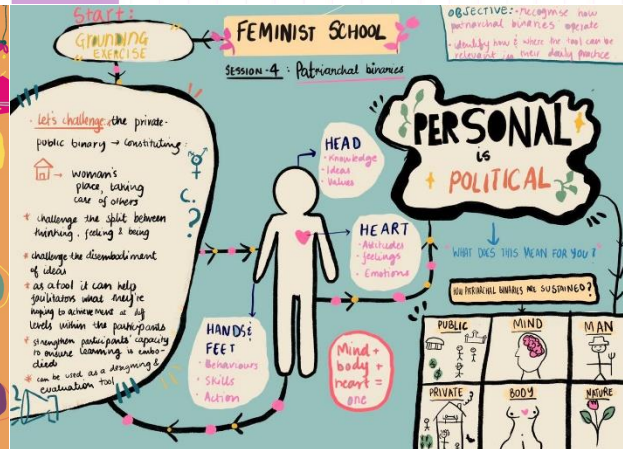 Start:
GROUNDING
EXERCISE
FEMINIST SCHOOL
SESSION-4 : Patriarchal binaries
OBJECTIVE:-Recognise how
patriarchal binaries operate
- identify how & where the tool can be
relevant in their daily practice
- let's challenge: the private-
public binary → constituting:
→ woman's
place, taking
care of others
* challenge the split between
thinking, feeling & being
* challenge the disembodiment
of ideas
* as a tool it can help
facilitators what they're
hoping to achievement at diff
levels within the participants
* strengthen participants' capacity
to ensure learning is embo-
died
* can be used as a designing &
evaluation tool
HEAD
• Knowledge
• Ideas
• Values
HEART
• Attitudes
• feelings
• Emotions
HANDS &
FEET
• Behaviours
• Skills
• Action
Mind +
body +
heart =
one
PERSONAL
is
POLITICAL
"WHAT DOES THIS MEAN FOR YOU?"
HOW PATRIARCHAL BINARIES ARE SUSTAINED?
PUBLIC
MIND
MAN
PRIVATE
BODY
NATURE